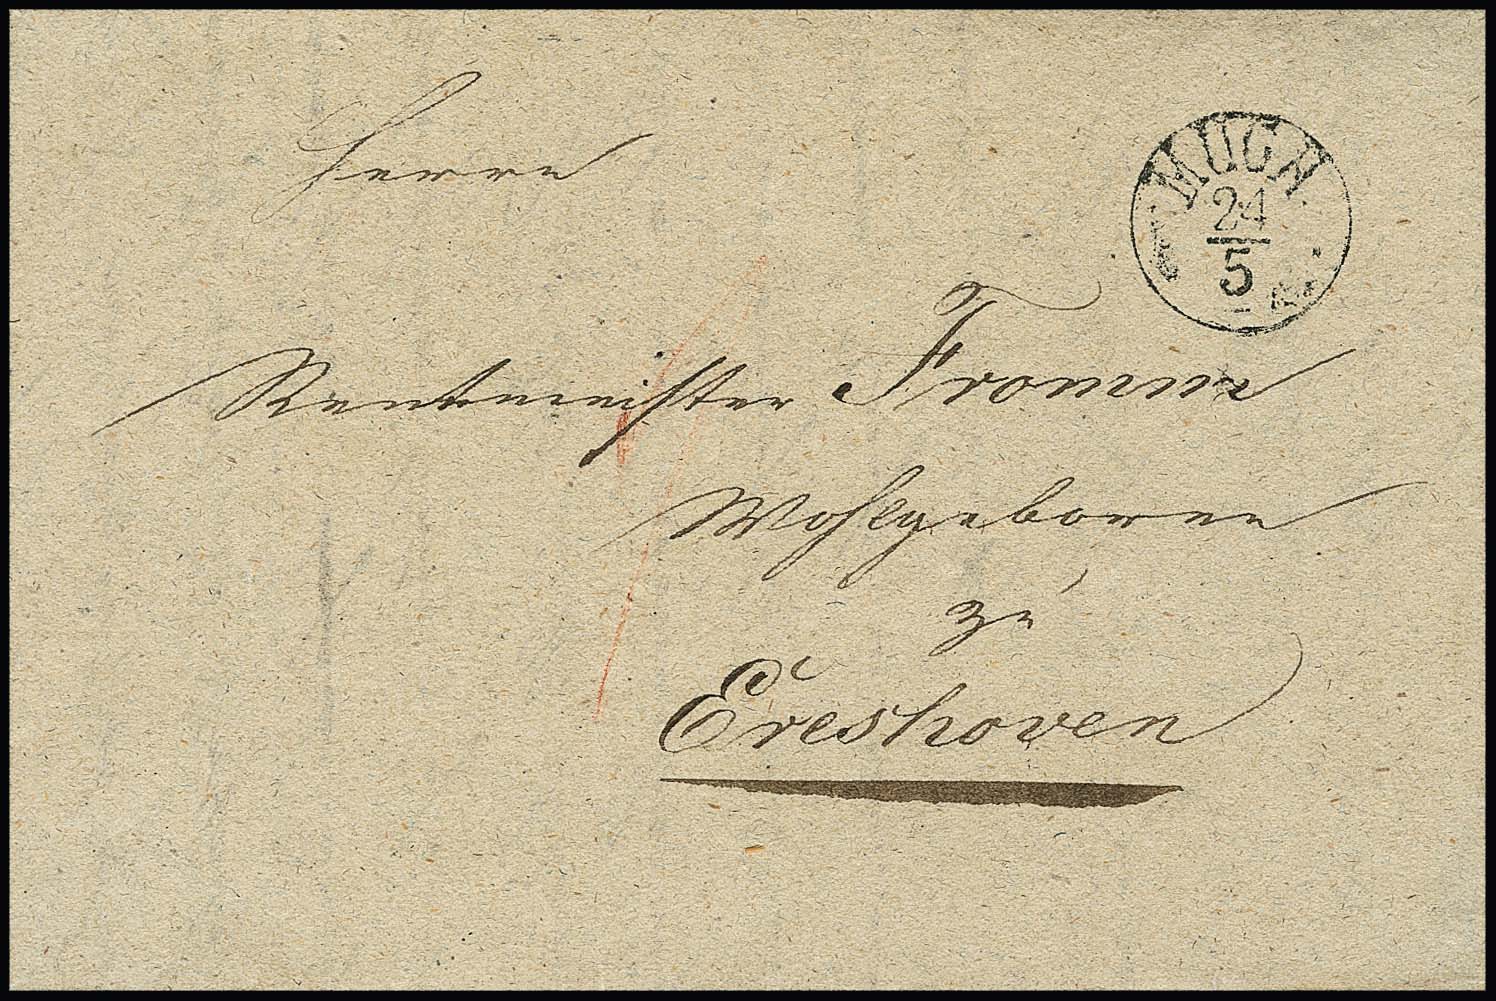 Herrn
MUCH
24
5
Rentmeister Fromm
Wohlgeboren
zu
Ereshoven